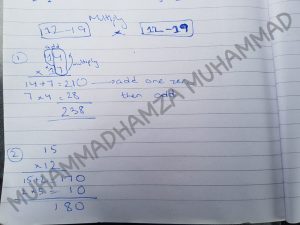 Multiply
12-19 × 12-19
① add
14
× 17 multiply
14+7=210 → add one zero
7×4=28 then add
238
②
15
×12
15+2=170
10
180
MUHAMMADHAMZA MUHAMMAD